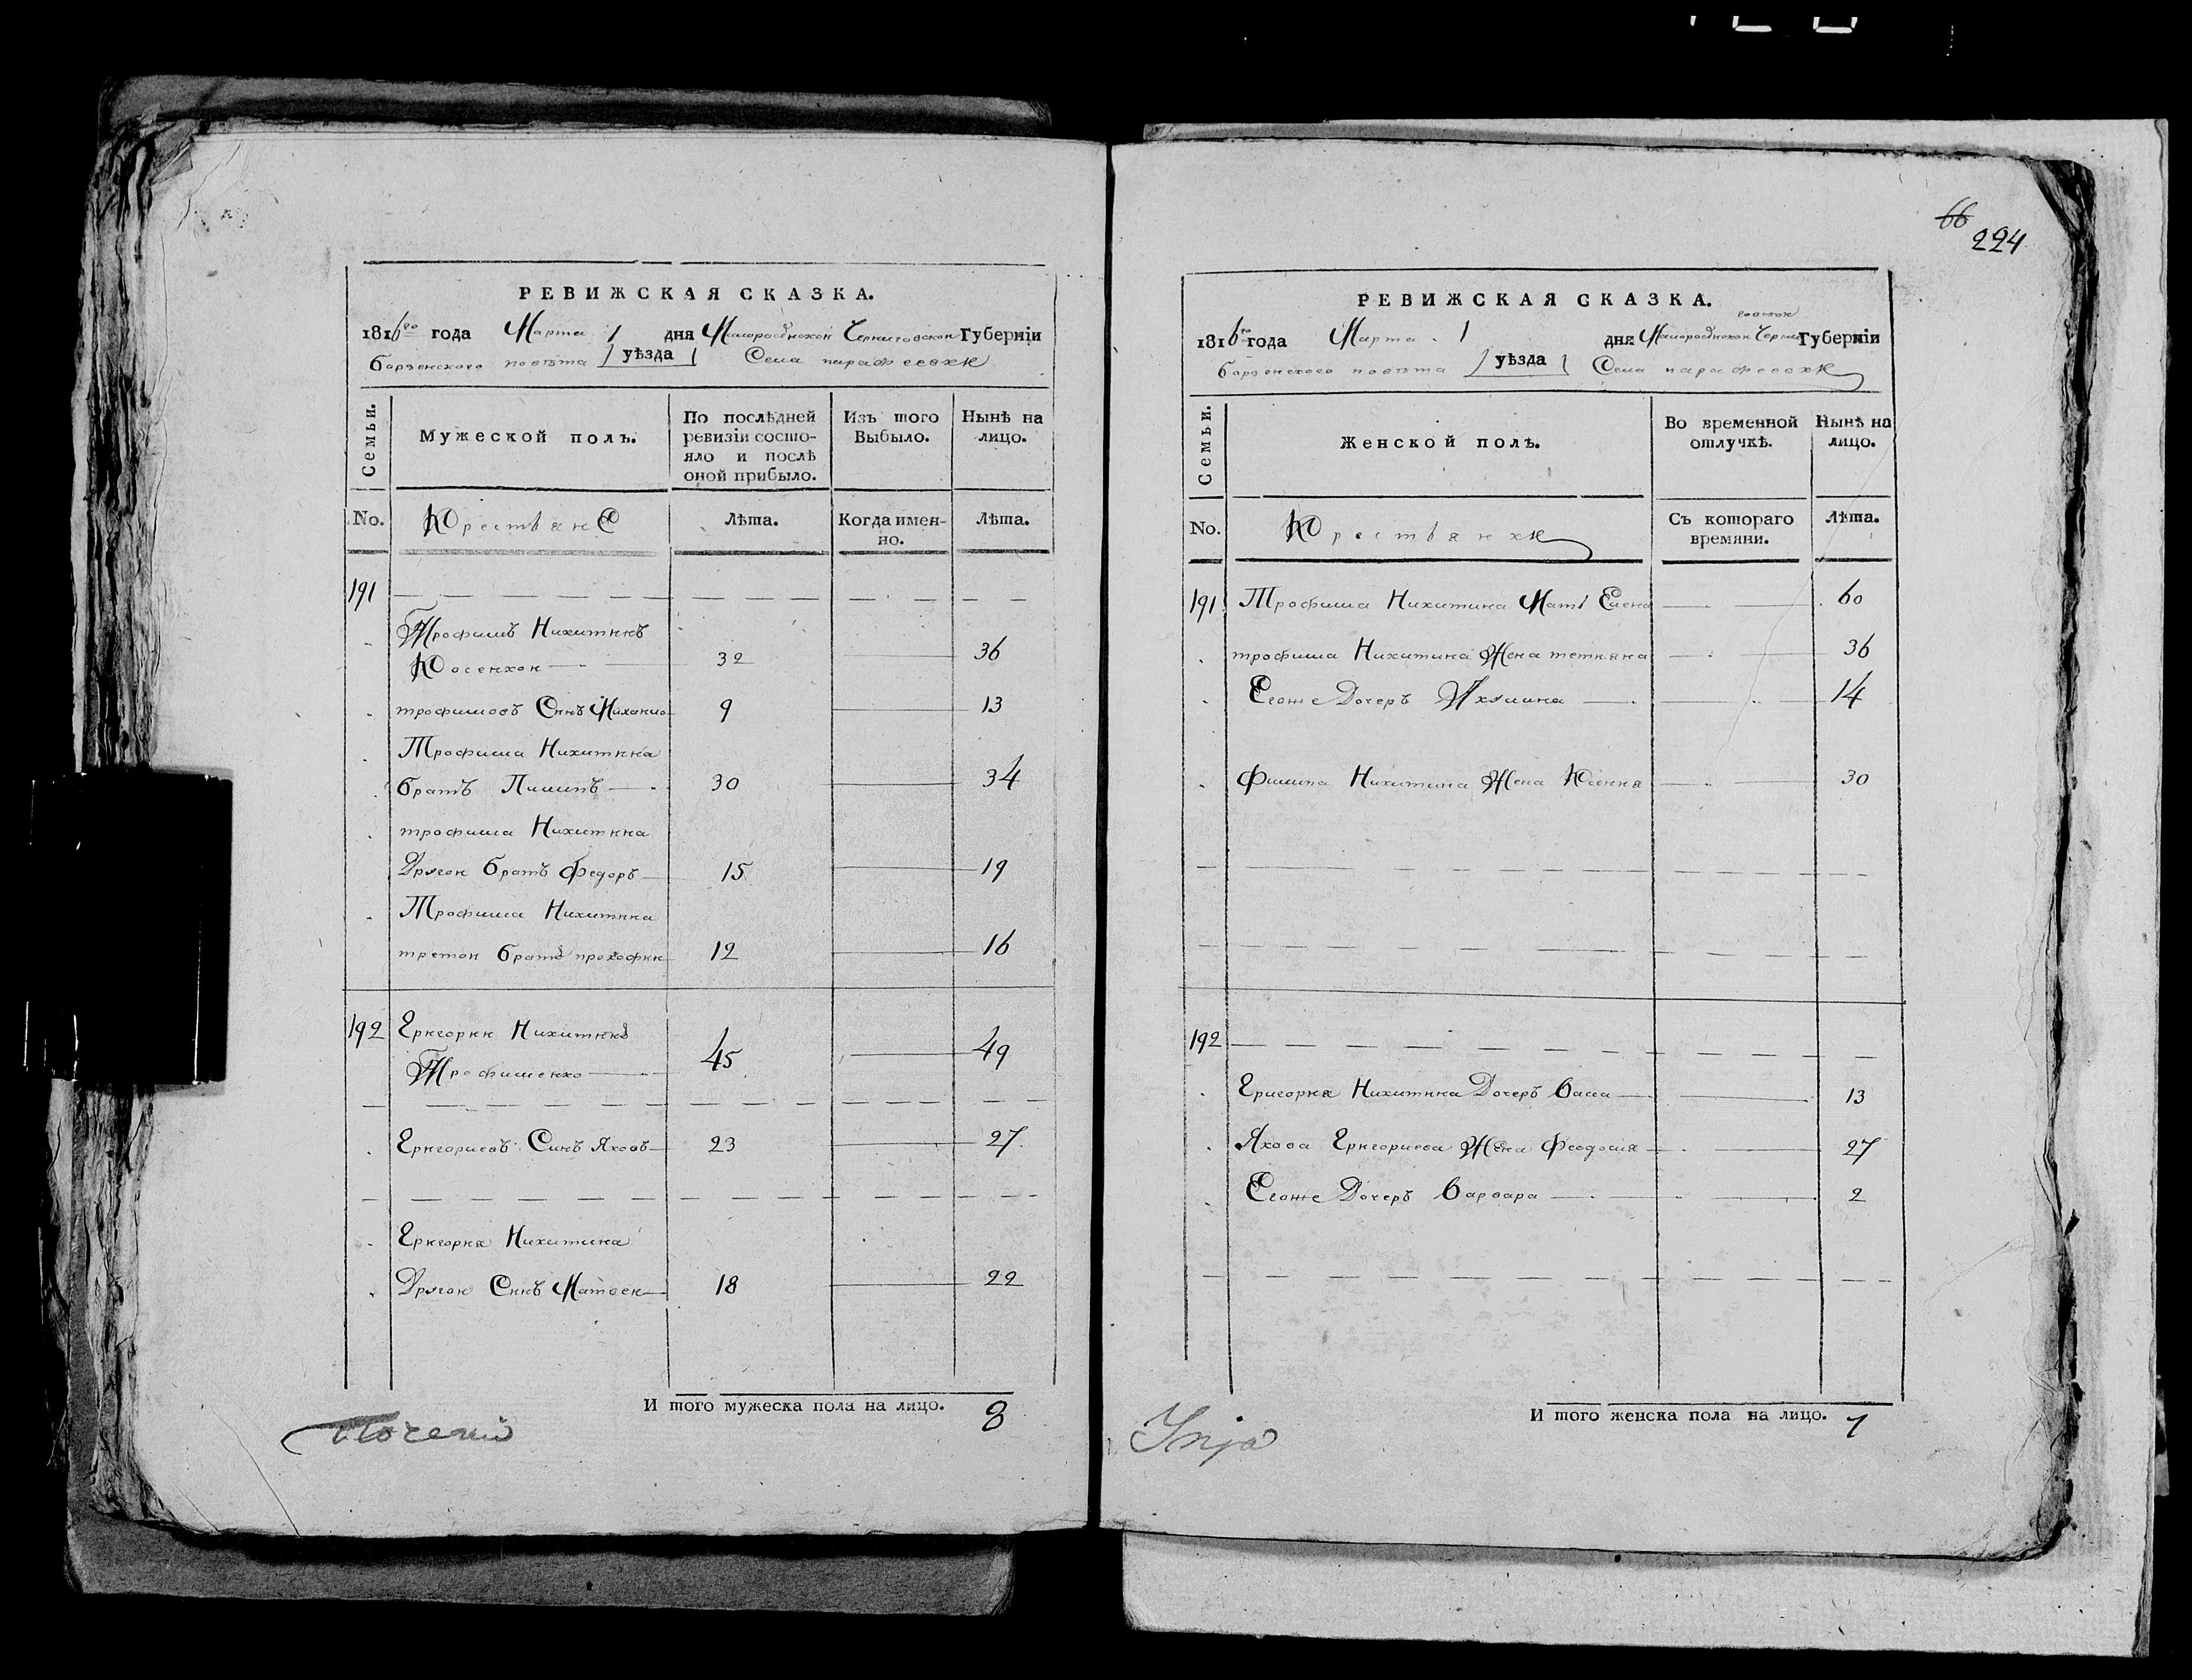 66
224
РЕВИЖСКАЯ СКАЗКА.
1816го года Марта 1 дня Малоросійской Черниговской Губерніи
борзенского повѣта уѣзда Села парафеевки
Семьи.
Мужеской полъ.
По послѣдней ревизіи состояло и послѣ оной прибыло.
Изъ того Выбыло.
Нынѣ на лицо.
No.
Крестьяне
Лѣта.
Когда именно.
Лѣта.
191
Трофимъ Никитинъ
32 36
трофимовъ Синъ Михаило 9 13
Трофима Никитина
братъ Пилипъ 30 34
трофима Никитина
Другой братъ Федоръ 15 19
Трофима Никитина
третой братъ прокофий 12 16
192 Григорий Никитинъ
Трофименко 45 49
Григориевъ Синъ Яковъ 23 27
Григория Никитина
Другой Синъ Матвей 18 22
И того мужеска пола на лицо. 8
РЕВИЖСКАЯ СКАЗКА.
1816го года Марта 1 дня Малоросійской Черниговской Губерніи
борзенского повѣта уѣзда Села парафеевки
Семьи.
Женской полъ.
Во временной отлучкѣ.
Нынѣ на лицо.
No.
Крестьянки
Съ котораго времяни.
Лѣта.
191 Трофима Никитина Мать Елена 60
трофима Никитина Жена тетияна 36
Егоже Дочеръ Акулина 14
Филипа Никитина Жена Ксения 30
192
Григория Никитина Дочеръ 13
Якова Григориева Жена Феодосия 27
Егоже Дочеръ Варвара 2
И того женска пола на лицо. 7